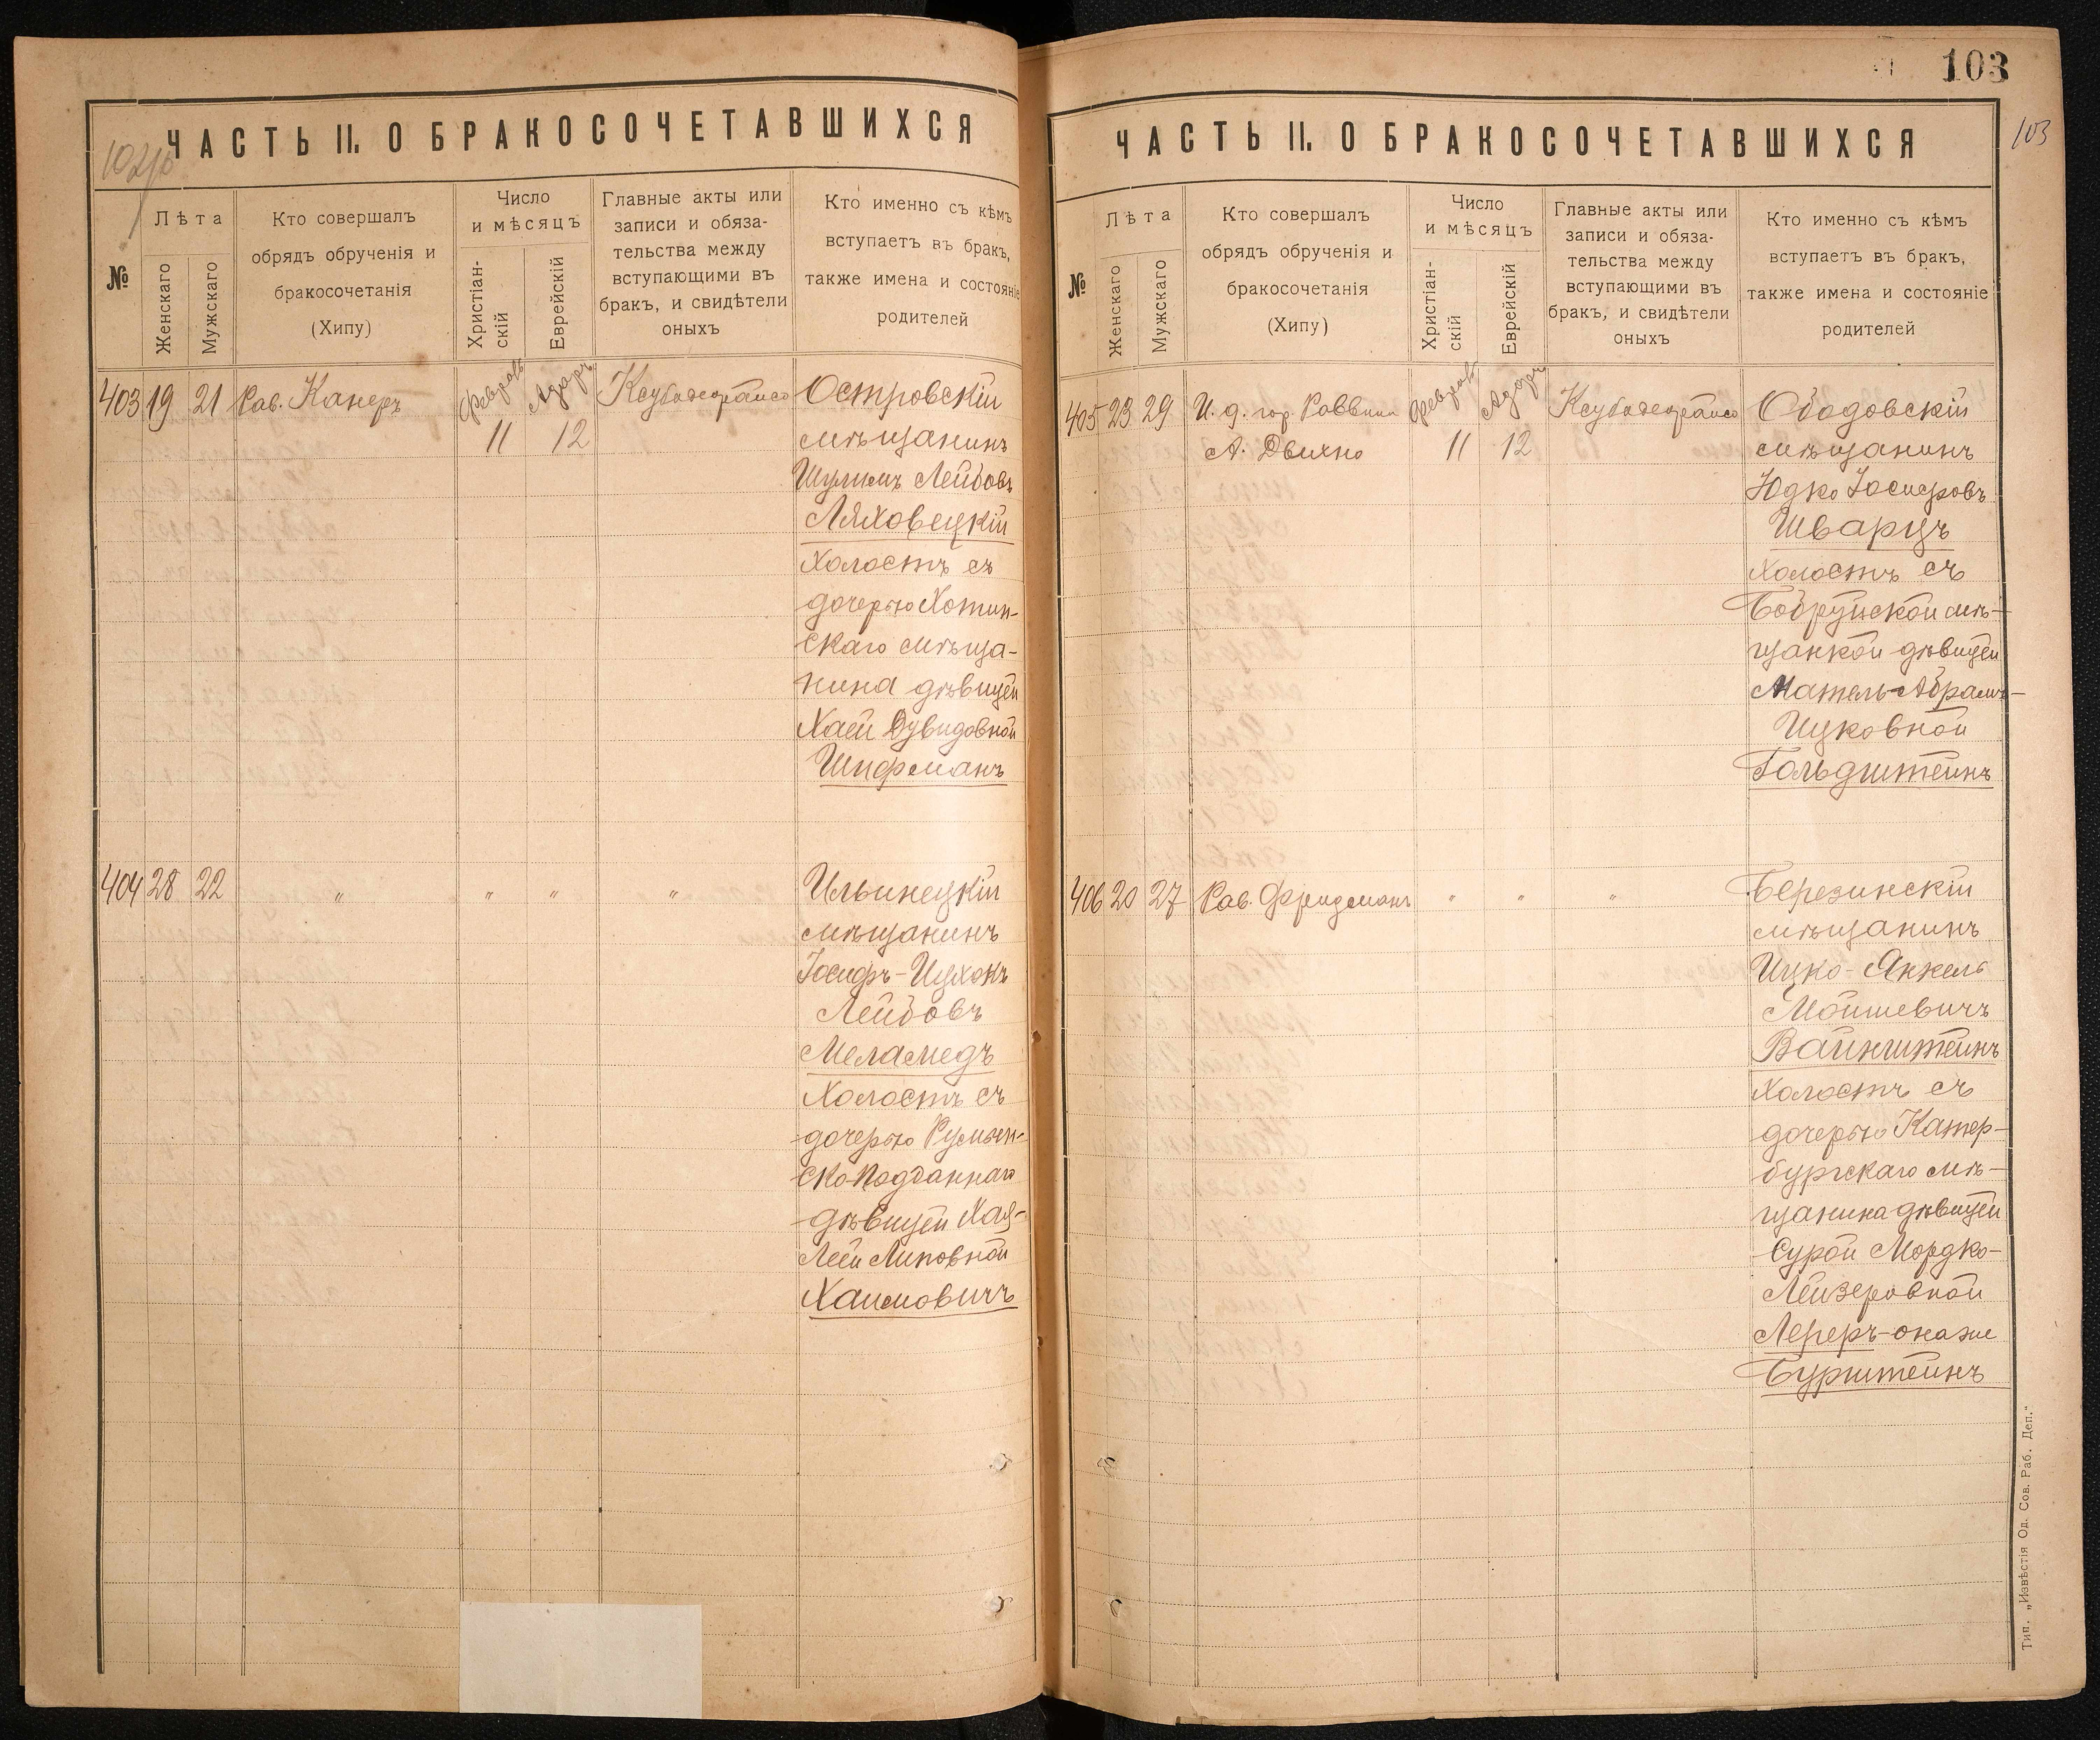 102об
ЧАСТЬ II. О БРАКОСОЧЕТАВШИХСЯ
№
Лѣта
Женскаго
Мужскаго
Кто совершалъ
обрядъ обрученія и
бракосочетанія
(Хипу)
Число
и мѣсяцъ
Христіан-
скій
Еврейскій
Главные акты или
записи и обяза-
тельства между
вступающими въ
бракъ, и свидѣтели
оныхъ
Кто именно съ кѣмъ
вступаетъ въ бракъ,
также имена и состояніе
родителей
403 19 21 Рав. Канеръ Февраль Адаръ Островскій
11 12 мѣщанинъ
Шулимъ Лейбовъ
Ляховецкій
холостъ съ
дочерью Хотин-
скаго мѣща-
нина дѣвицей
Хаей Дувидовной
Шифманъ
404 28 22 " " " " Ильинецкій
мѣщанинъ
Іосифъ-Ицхокъ
Лейбовъ
Меламедъ
холостъ съ
дочерью Румын-
ско-подданнаго
дѣвицей Хая-
Леей Липовной
Хаимовичъ
103
103
ЧАСТЬ II. О БРАКОСОЧЕТАВШИХСЯ
№
Лѣта
Женскаго
Мужскаго
Кто совершалъ
обрядъ обрученія и
бракосочетанія
(Хипу)
Число
и мѣсяцъ
Христіан-
скій
Еврейскій
Главные акты или
записи и обяза-
тельства между
вступающими въ
бракъ, и свидѣтели
оныхъ
Кто именно съ кѣмъ
вступаетъ въ бракъ,
также имена и состояніе
родителей
405 23 29 И. д. гор. Раввина Февраль Адаръ Ободовскій
А. Двихно 11 12 мѣщанинъ
Юдко Іосифовъ
Шварцъ
холостъ съ
Бобруйской мѣ-
щанкой дѣвицей
Матель-Абрамъ-
Ицковной
Гольдштейнъ
406 20 27 Рав. Фридманъ " " " Березинскій
мѣщанинъ
Ицко-Янкель
Мойшевичъ
Вайнштейнъ
холостъ съ
дочерью Катер-
бургскаго мѣ-
щанина дѣвицей
Сурой Мордко-
Лейзеровной
Лереръ-она же
Бурштейнъ
Тип. „Извѣстія Од. Сов. Раб. Деп."